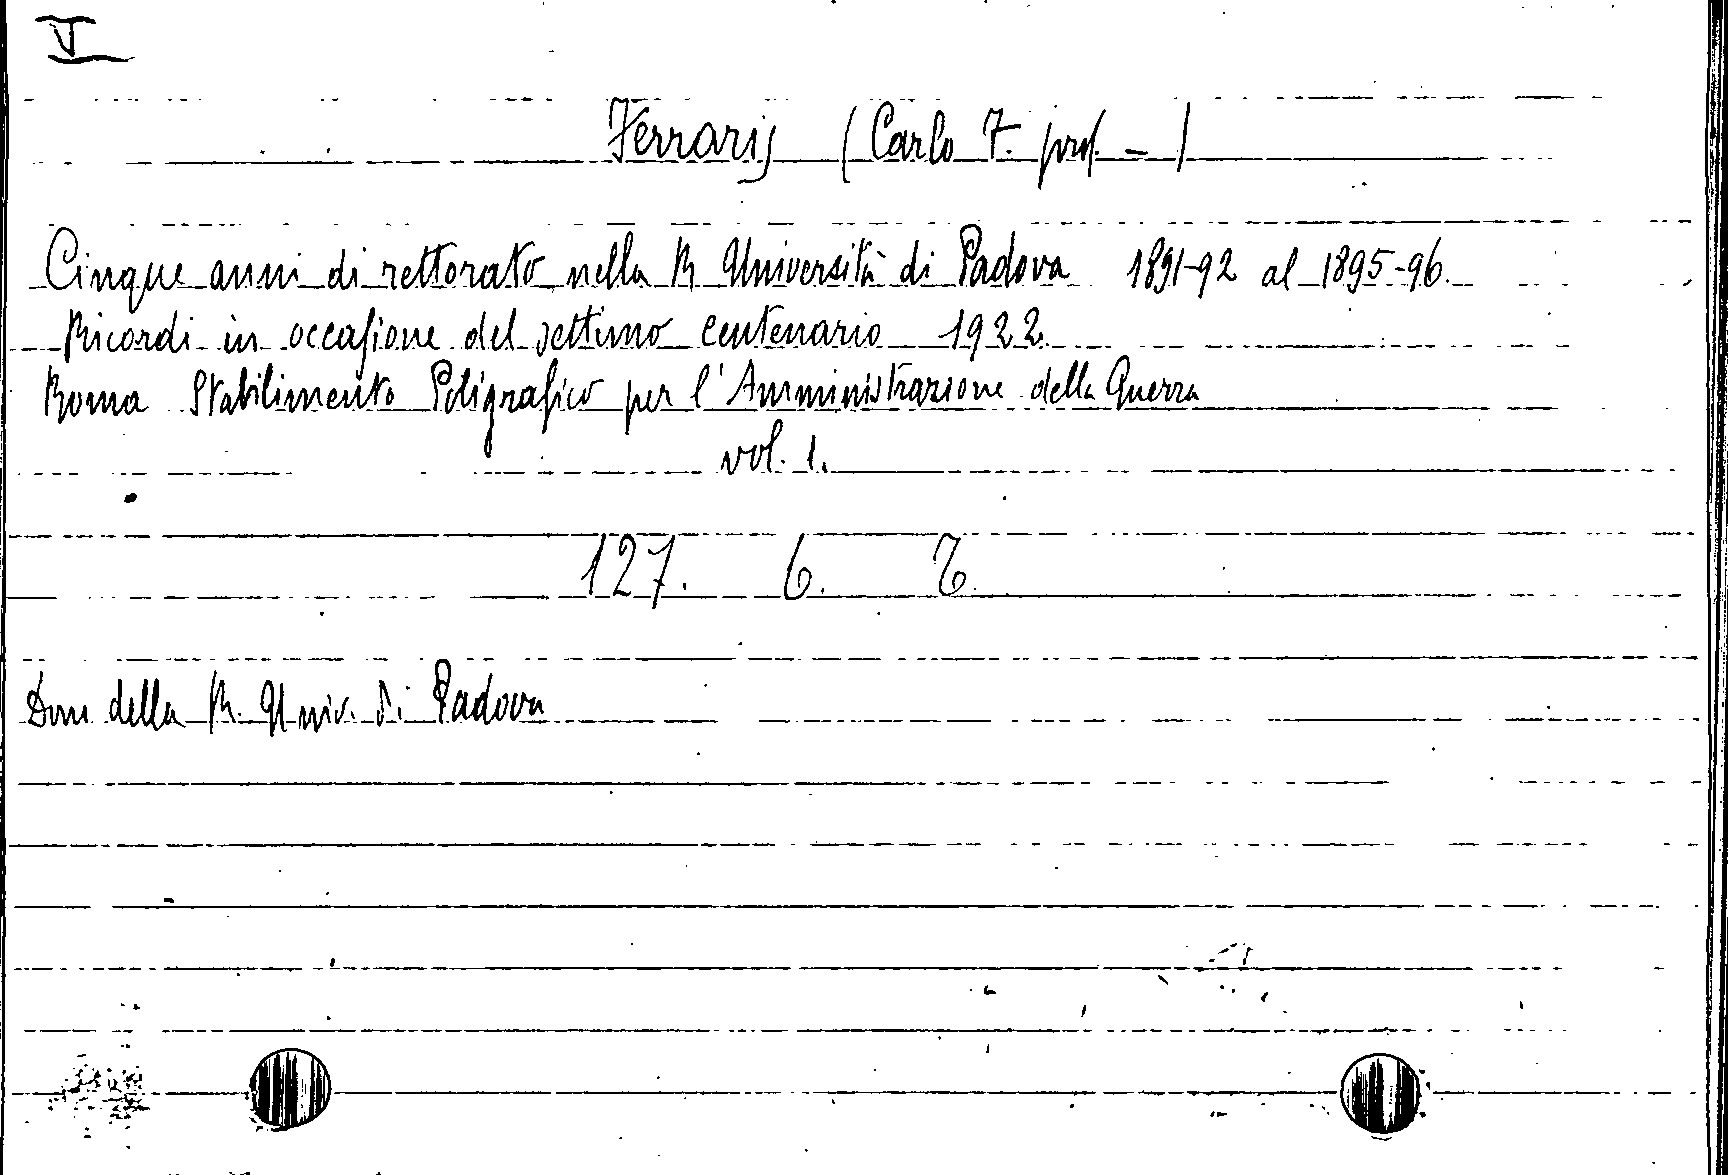 V
Ferraris (Carlo F. prof. - )
Cinque anni di rettorato nella R. Università di Padova 1891-92 al 1895-96.
Ricordi in occasione del settimo centenario 1922.
Roma Stabilimento Poligrafico per l'Amministrazione della Guerra
vol. 1.
127. 6.
Dono della R. Univ. di Padova